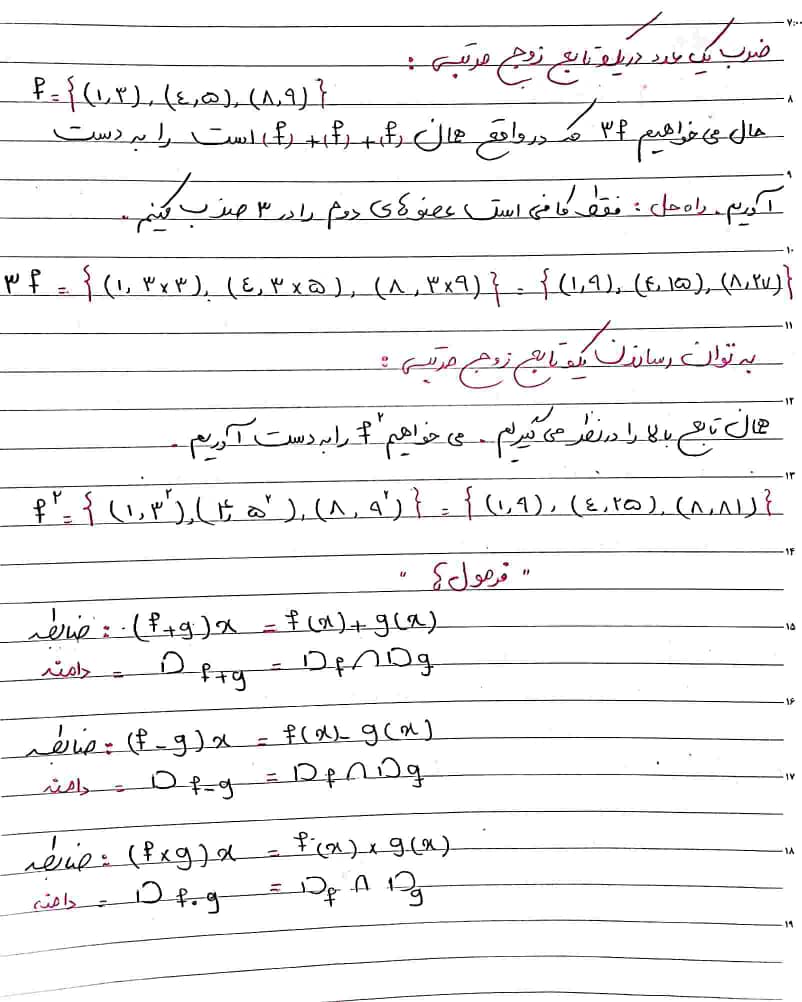 ۷:۰۰
ضرب یک عدد در یک تابع زوج مرتبی :
۸
f = {(۱,۳), (۴,۵), (۸,۹)}
حال می خواهیم ۳f که در واقع همان (f) + (f) + (f) است را به دست
۹
آوریم. راه حل : فقط کافی است عضوهای دوم را در ۳ ضرب کنیم.
۱۰
۳f = {(۱, ۳×۳), (۴, ۳×۵), (۸, ۳×۹)} = {(۱,۹), (۴,۱۵), (۸,۲۷)}
۱۱
به توان رساندن یک تابع زوج مرتبی :
۱۲
همان تابع بالا را در نظر می گیریم. می خواهیم f² را به دست آوریم.
۱۳
f² = {(۱,۳²), (۴,۵²), (۸,۹²)} = {(۱,۹), (۴,۲۵), (۸,۸۱)}
۱۴
" فرمول ها "
۱۵
ضابطه : (f+g)x = f(x)+g(x)
دامنه = D f+g = Df∩Dg
۱۶
ضابطه : (f-g)x = f(x)-g(x)
۱۷
دامنه = D f-g = Df∩Dg
۱۸
ضابطه : (f×g)x = f(x)×g(x)
دامنه = D f.g = Df∩Dg
۱۹